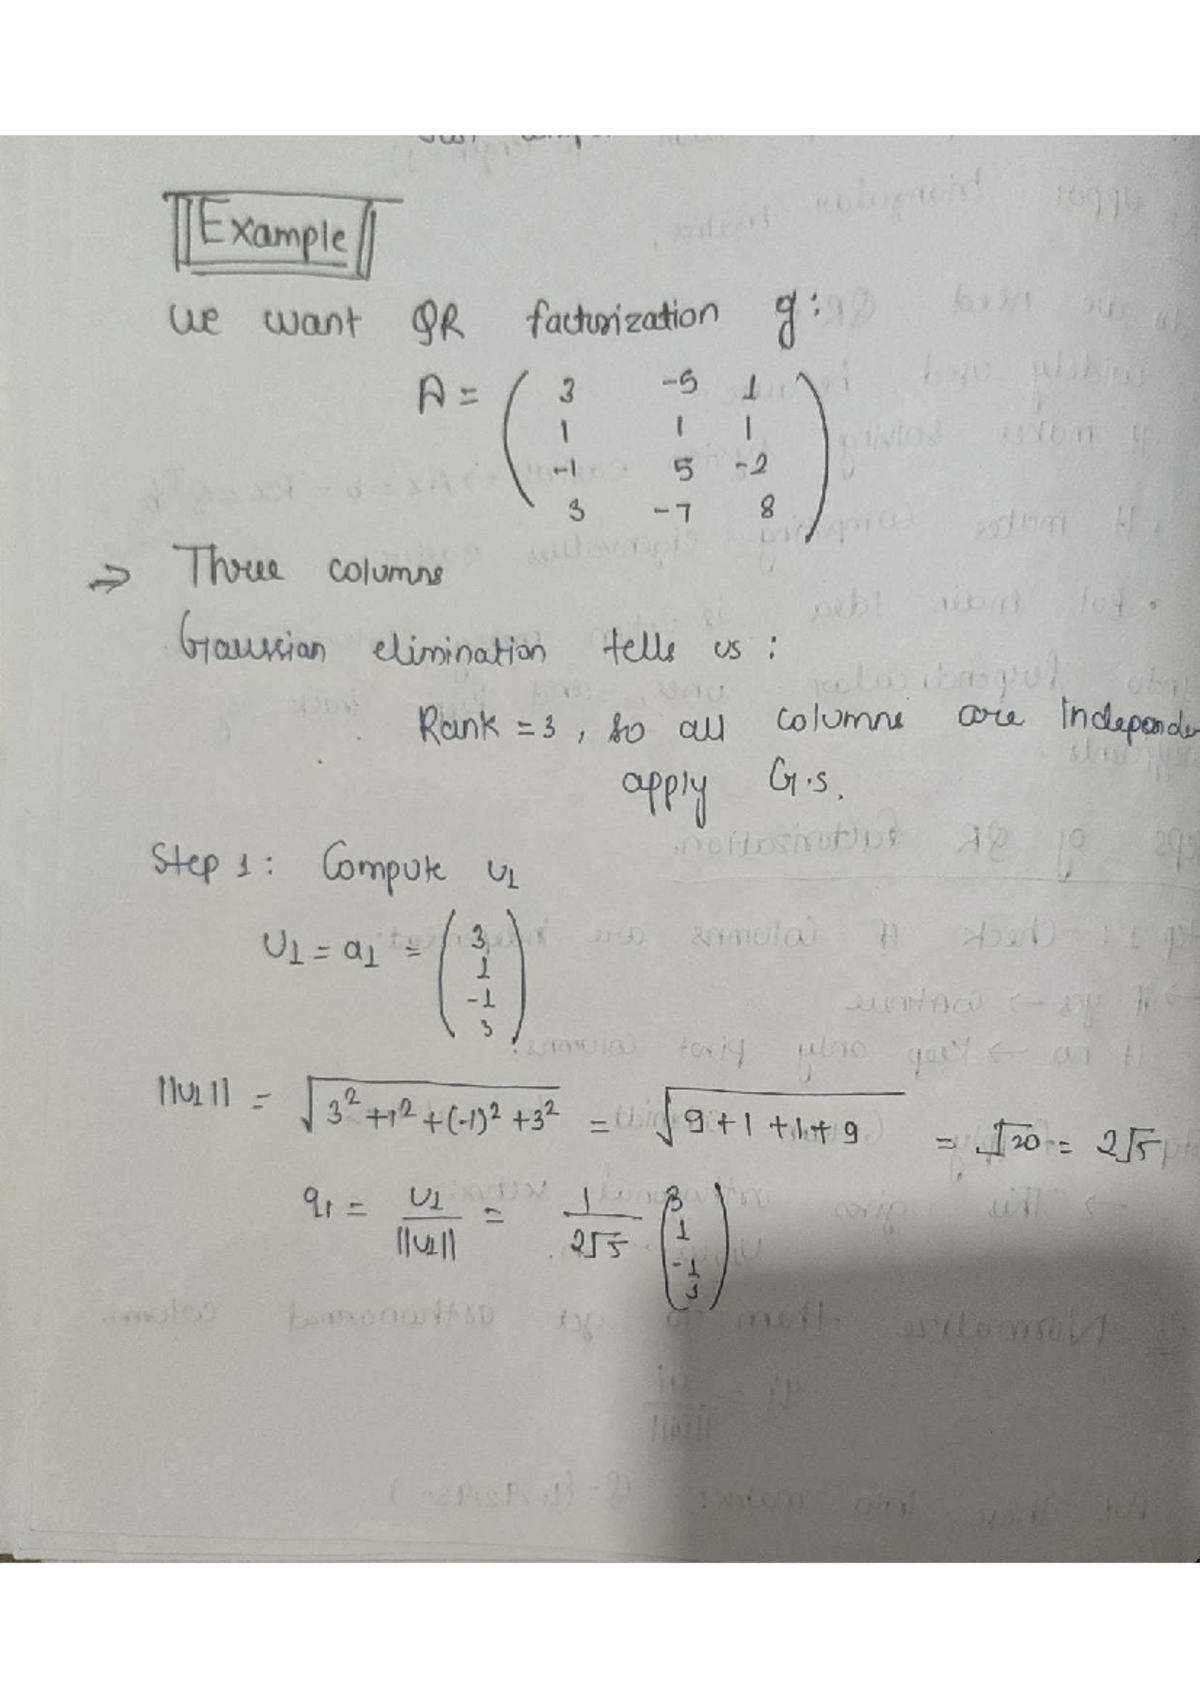 Example
we want QR factorization of:
A = ( 3 -5 1
1 1 1
-1 5 -2
3 -7 8 )
⇒ Three columns
Gaussian elimination tells us :
Rank = 3, so all columns are Independe
apply G.S.
Step 1 : Compute u1
U1 = a1 = ( 3
1
-1
3 )
||u1|| = √3² + 1² + (-1)² + 3² = √9 + 1 + 1 + 9 = √20 = 2√5
q1 = u1/||u1|| = 1/2√5 ( 3
1
-1
3 )